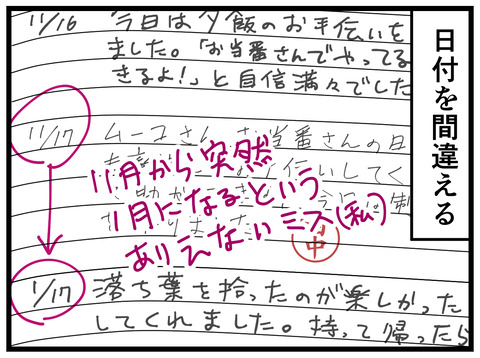 日付を間違える
11/16 今日は夕飯のお手伝いを
ました。「お当番さんでやってる
きるよ!」と自信満々でした
11/17 ムーコさん お当番さんの日
伝いしてく
助か
11月から突然
1月になるという
ありえないミス(私)
中
1/17 落ち葉を拾ったのが楽しかった
してくれました。持って帰ったら